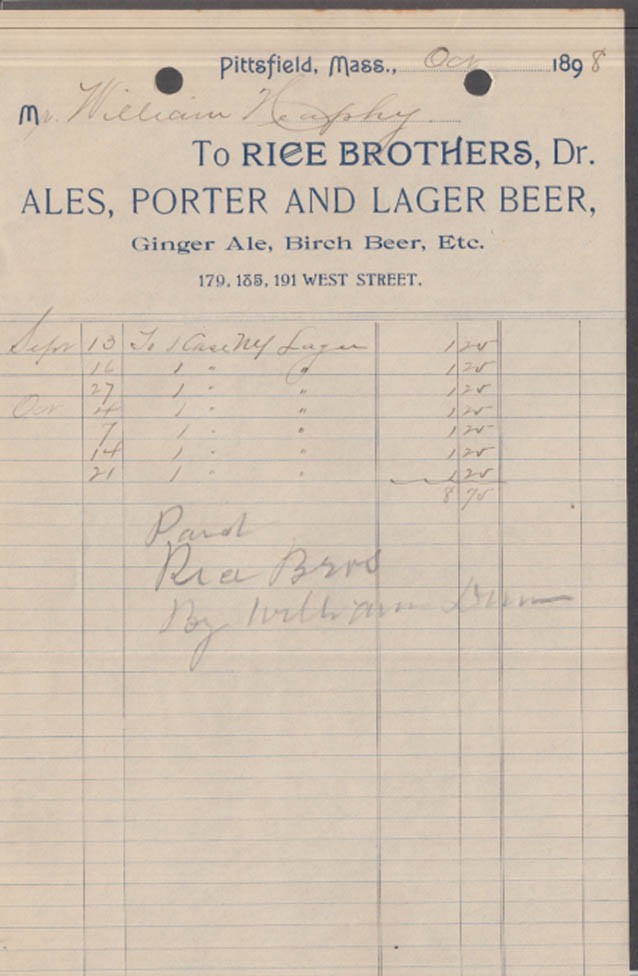 Pittsfield, Mass., Oct 1898
Mr. William Heaphy
To RICE BROTHERS, Dr.
ALES, PORTER AND LAGER BEER,
Ginger Ale, Birch Beer, Etc.
179, 185, 191 WEST STREET.
Sept 13 To 1 Case NY Lager 1 25
16 1 " " 1 25
27 1 " " 1 25
Oct 4 1 " " 1 25
7 1 " " 1 25
14 1 " " 1 25
21 1 " " 1 25
8 75
Paid
Rice Bros
By William Dunn